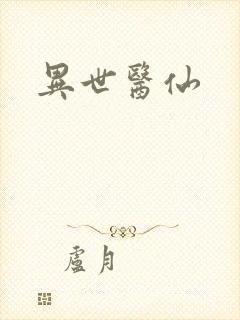 異世醫仙
盧月